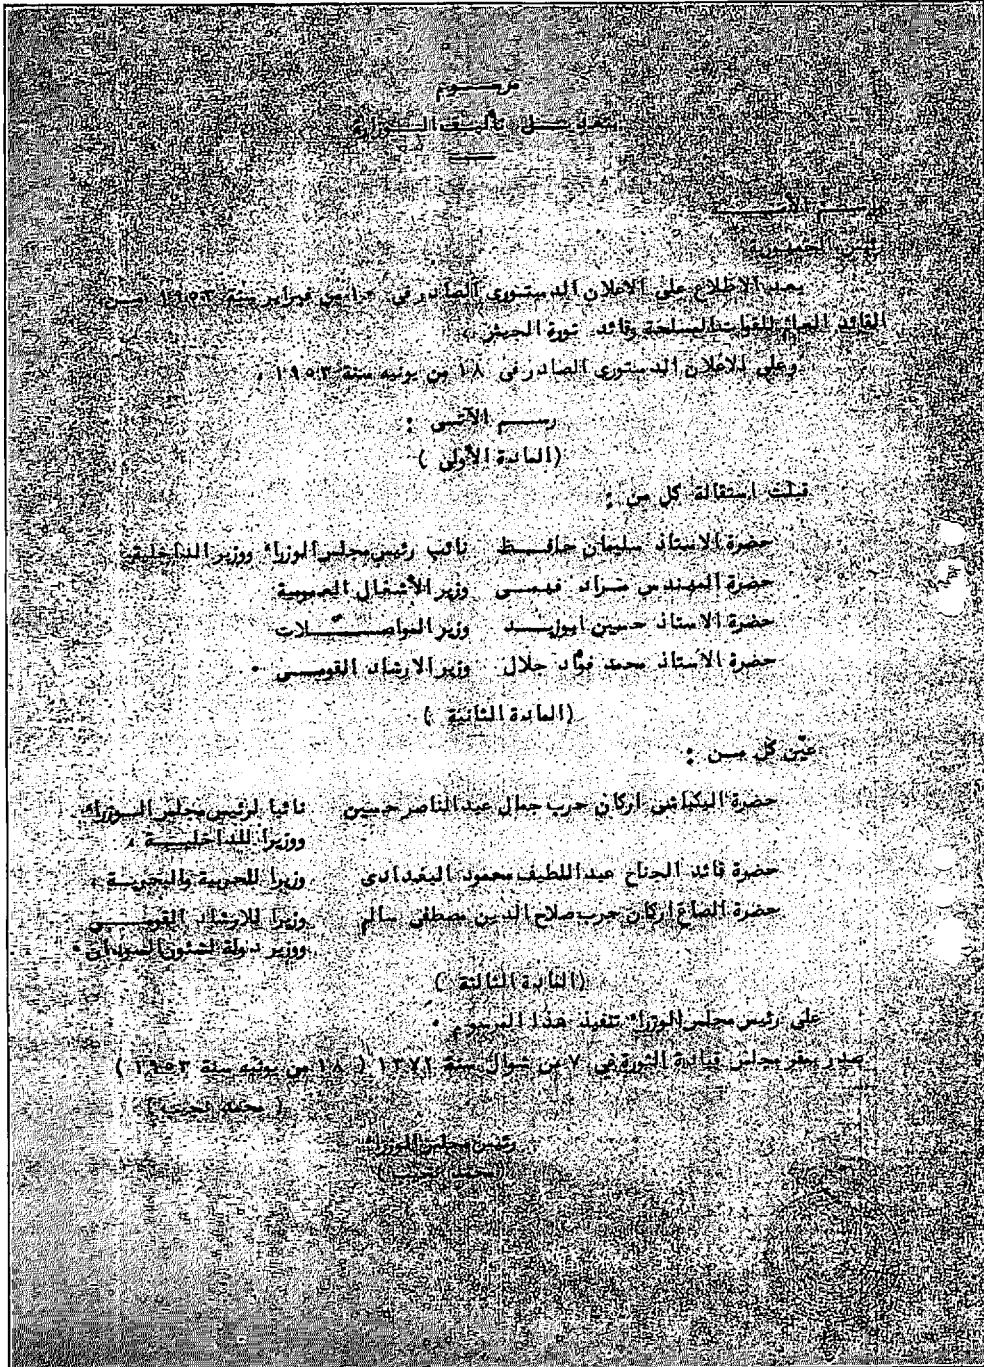 مرسوم
بتعديل تأليف الوزارة
باسم الأمة
رئيس الجمهورية
بعد الاطلاع على الاعلان الدستورى الصادر فى ١٠ من فبراير سنة ١٩٥٣ من
القائد العام للقوات المسلحة وقائد ثورة الجيش ،
وعلى الاعلان الدستورى الصادر فى ١٨ من يونيه سنة ١٩٥٣ ،
رسم الآتى :
(المادة الأولى )
قبلت استقالة كل من :
حضرة الاستاذ سليمان حافظ نائب رئيس مجلس الوزراء ووزير الداخلية
حضرة المهندس مراد فهمى وزير الأشغال العمومية
حضرة الاستاذ حسين ابوزيد وزير المواصلات
حضرة الاستاذ محمد فؤاد جلال وزير الارشاد القومى .
(المادة الثانية )
عيّن كل من :
حضرة البكباشى اركان حرب جمال عبدالناصر حسين نائبا لرئيس مجلس الوزراء
ووزيرا للداخلية ،
حضرة قائد الجناح عبداللطيف محمود البغدادى وزيرا للحربية والبحرية ،
حضرة الصاغ اركان حرب صلاح الدين مصطفى سالم وزيرا للارشاد القومى
ووزير دولة لشئون السودان .
(المادة الثالثة )
على رئيس مجلس الوزراء تنفيذ هذا المرسوم .
صدر بمقر مجلس قيادة الثورة فى ٧ من شوال سنة ١٣٧٢ ( ١٨ من يونيه سنة ١٩٥٣ )
( محمد نجيب )
رئيس مجلس الوزراء
( محمد نجيب )